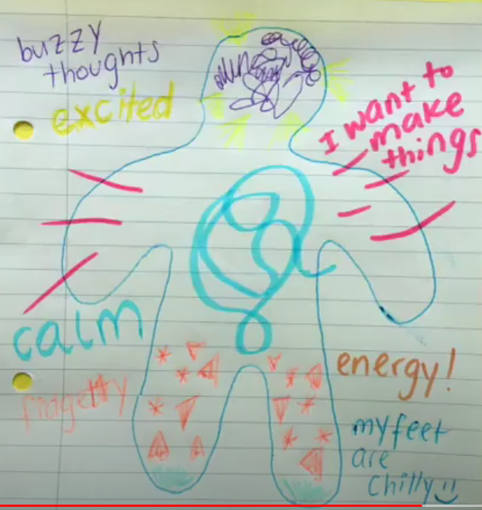 buzzy
thoughts
excited
I want to
make
things
calm
energy!
fidgetty
my feet
are
chilly